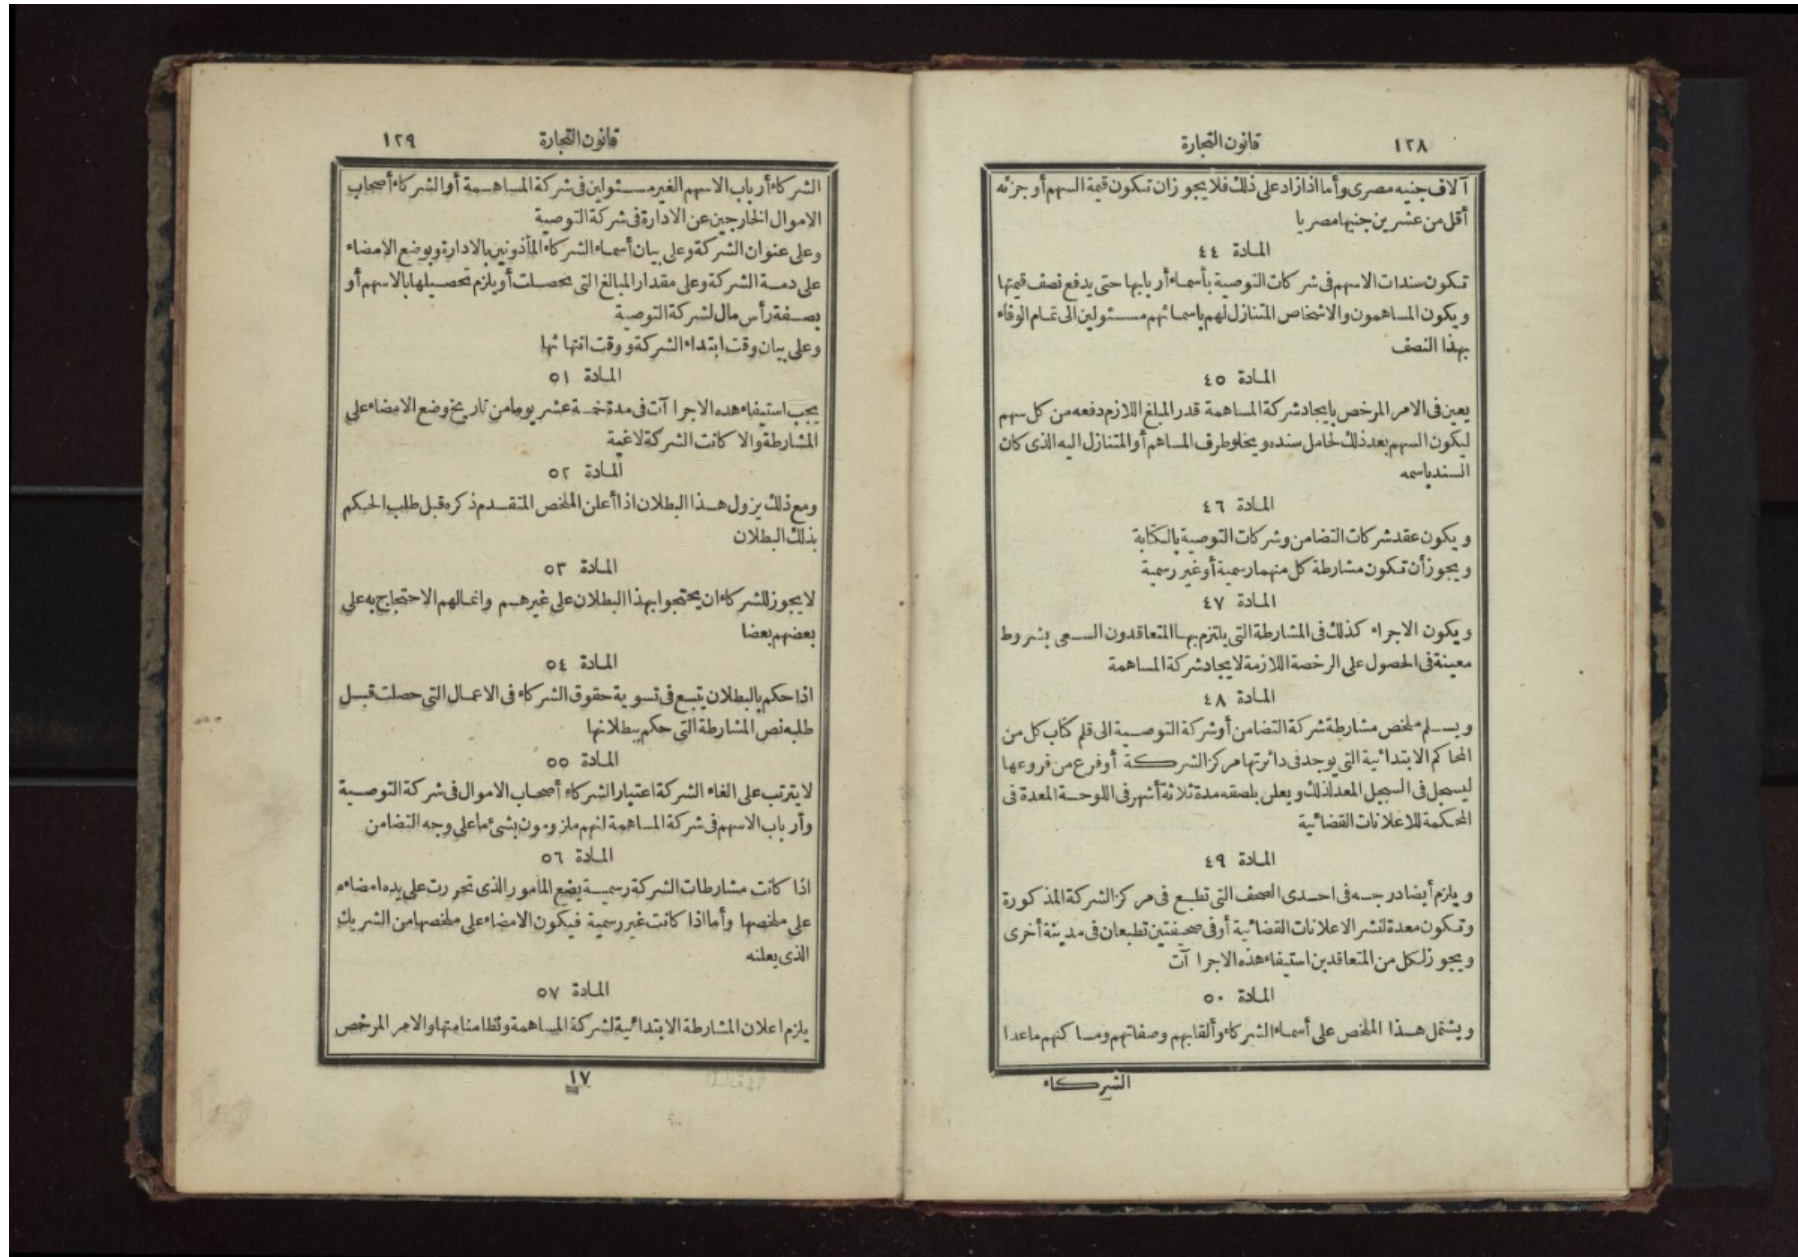 ١٢٨
قانون التجارة
آلاف جنيه مصرى وأما اذا زاد على ذلك فلا يجوز ان تكون قيمة السهم أو جزئه
أقل من عشرين جنيها مصريا
المادة ٤٤
تكون سندات الاسهم فى شركات التوصية بأسماء أربابها حتى يدفع نصف قيمتها
ويكون المساهمون والاشخاص المتنازل لهم باسمائهم مسئولين الى تمام الوفاء
بهذا النصف
المادة ٤٥
يعين فى الامر المرخص بايجاد شركة المساهمة قدر المبلغ اللازم دفعه من كل سهم
ليكون السهم بعد ذلك لحامل سنده ويخلو طرف المساهم أو المتنازل اليه الذى كان
السند باسمه
المادة ٤٦
ويكون عقد شركات التضامن وشركات التوصية بالكتابة
ويجوز أن تكون مشارطة كل منهما رسمية أو غير رسمية
المادة ٤٧
ويكون الاجراء كذلك فى المشارطة التى يلتزم بها المتعاقدون السعى بشروط
معينة فى الحصول على الرخصة اللازمة لايجاد شركة المساهمة
المادة ٤٨
ويسلم ملخص مشارطة شركة التضامن أو شركة التوصية الى قلم كتاب كل من
المحاكم الابتدائية التى يوجد فى دائرتها مركز الشركة أو فرع من فروعها
ليسجل فى السجل المعد لذلك ويعلن بلصقه مدة ثلاثة أشهر فى اللوحة المعدة فى
المحكمة للاعلانات القضائية
المادة ٤٩
ويلزم أيضا درجه فى احدى الصحف التى تطبع فى مركز الشركة المذكورة
وتكون معدة لنشر الاعلانات القضائية أو فى صحيفتين تطبعان فى مدينة أخرى
ويجوز لكل من المتعاقدين استيفاء هذه الاجراآت
المادة ٥٠
ويشتمل هذا الملخص على أسماء الشركاء وألقابهم وصفاتهم ومساكنهم ماعدا
الشركاء
قانون التجارة
١٢٩
الشركاء أرباب الاسهم الغير مسئولين فى شركة المساهمة أو الشركاء أصحاب
الاموال الخارجين عن الادارة فى شركة التوصية
وعلى عنوان الشركة وعلى بيان أسماء الشركاء المأذونين بالادارة وبوضع الامضاء
على ذمة الشركة وعلى مقدار المبالغ التى تحصلت أو يلزم تحصيلها بالاسهم أو
بصفة رأس مال لشركة التوصية
وعلى بيان وقت ابتداء الشركة ووقت انتهائها
المادة ٥١
يجب استيفاء هذه الاجراآت فى مدة خمسة عشر يوما من تاريخ وضع الامضاء على
المشارطة والا كانت الشركة لاغية
المادة ٥٢
ومع ذلك يزول هذا البطلان اذا أعلن الملخص المتقدم ذكره قبل طلب الحكم
بذلك البطلان
المادة ٥٣
لا يجوز للشركاء ان يحتجوا بهذا البطلان على غيرهم وانما لهم الاحتجاج به على
بعضهم بعضا
المادة ٥٤
اذا حكم بالبطلان يتبع فى تسوية حقوق الشركاء فى الاعمال التى حصلت قبل
طلبه نص المشارطة التى حكم ببطلانها
المادة ٥٥
لا يترتب على الغاء الشركة اعتبار الشركاء أصحاب الاموال فى شركة التوصية
وأرباب الاسهم فى شركة المساهمة انهم ملزومون بشئ ما على وجه التضامن
المادة ٥٦
اذا كانت مشارطات الشركة رسمية يضع المأمور الذى تحررت على يده امضاءه
على ملخصها وأما اذا كانت غير رسمية فيكون الامضاء على ملخصها من الشريك
الذى يعلنه
المادة ٥٧
يلزم اعلان المشارطة الابتدائية لشركة المساهمة ونظامنامتها والامر المرخص
١٧